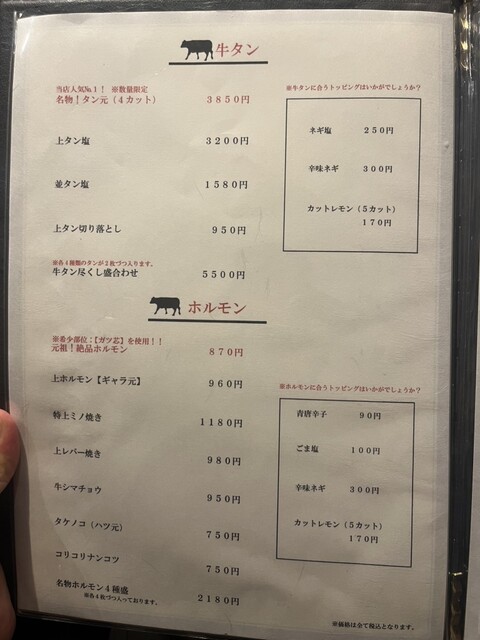 牛タン
当店人気№1！ ※数量限定
名物！タン元（4カット） 3850円
上タン塩 3200円
並タン塩 1580円
上タン切り落とし 950円
※各4種類のタンが2枚づつ入ります。
牛タン尽くし盛合わせ 5500円
※牛タンに合うトッピングはいかがでしょうか？
ネギ塩 250円
辛味ネギ 300円
カットレモン（5カット）
170円
ホルモン
※希少部位：【ガツ芯】を使用！！
元祖！絶品ホルモン 870円
上ホルモン【ギャラ元】 960円
特上ミノ焼き 1180円
上レバー焼き 980円
牛シマチョウ 950円
タケノコ（ハツ元） 750円
コリコリナンコツ 750円
名物ホルモン4種盛 2180円
※各4枚づつ入っております。
※ホルモンに合うトッピングはいかがでしょうか？
青唐辛子 90円
ごま塩 100円
辛味ネギ 300円
カットレモン（5カット）
170円
※価格は全て税込となります。